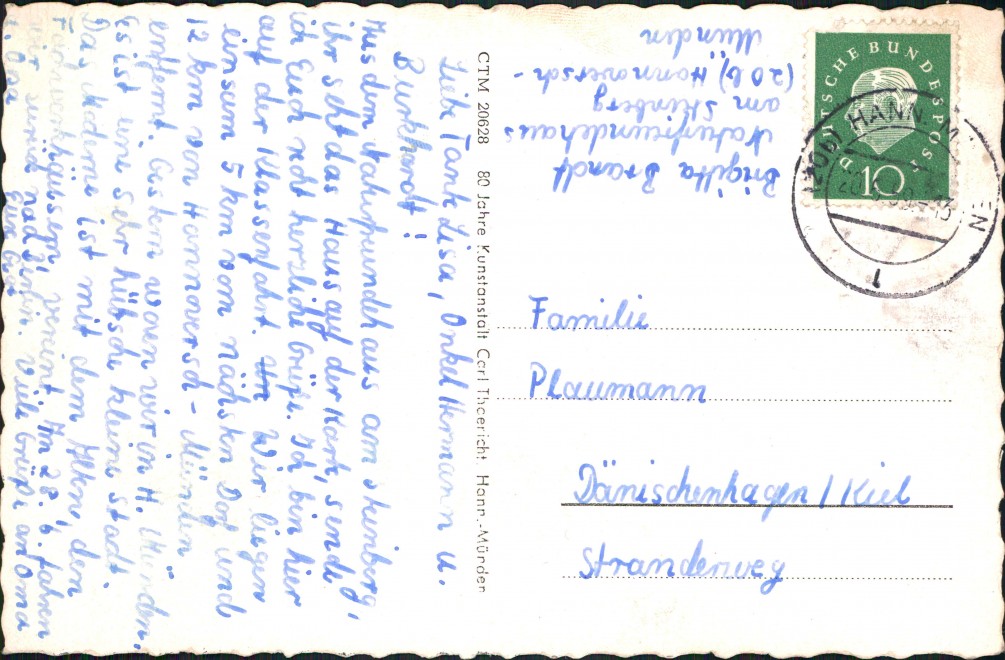 Liebe Tante Lisa, Onkel Hermann u.
Burkhardt!
Aus dem Naturfreundehaus am Steinberg,
ihr seht das Haus auf der Karte, sende
ich Euch recht herzliche Grüße. Ich bin hier
auf der Klassenfahrt. Wir liegen
einsam 5 km vom nächsten Dorf und
12 km von Hannoversch-Münden
entfernt. Gestern waren wir in H. Münden.
Es ist eine sehr hübsche kleine Stadt.
Das Moderne ist mit dem Alten, den
Fachwerkhäusern, vereint. Am 28. 6. fahren
wir zurück nach Berlin. Viele Grüße an Oma
u. Opa Eure Gitta
CTM 20628 80 Jahre Kunstanstalt Carl Thoericht Hann.-Münden
Brigitta Brandt
Naturfreundehaus
am Steinberg
(20b), Hannoversch-
Münden
DEUTSCHE BUNDESPOST
10
(20b) HANN. M EN
13
1
Familie
Plaumann
Dänischenhagen / Kiel
Strandenweg